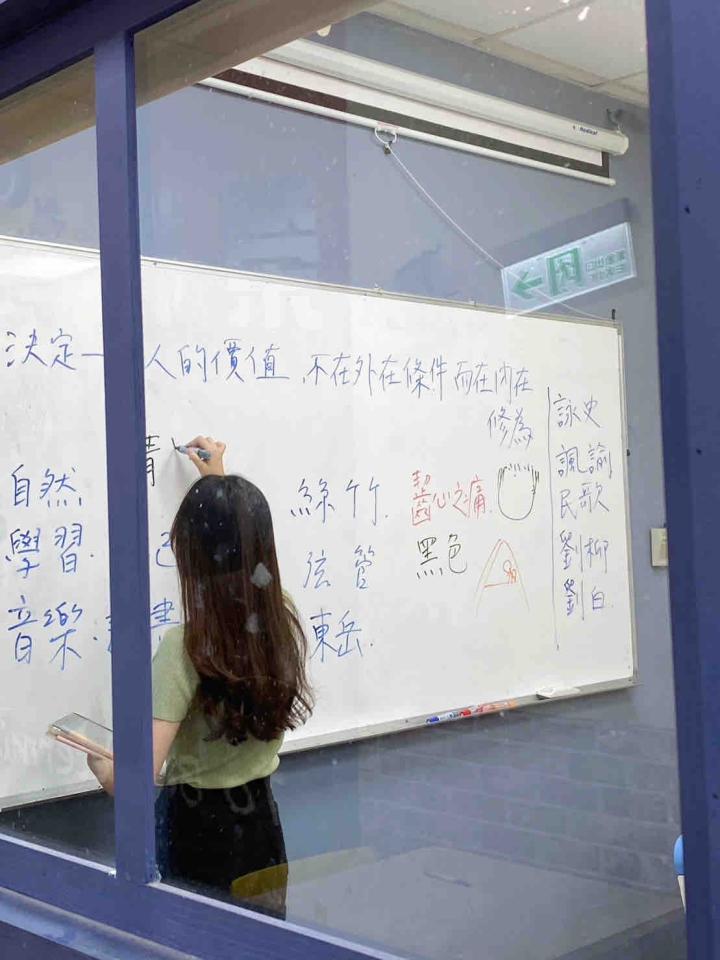 決定一 人的價值 不在外在條件 而在內在
修為
自然
學習.
音樂.
己
書
絲竹.
弦管
東岳.
齧心之痛.
黑色
詠史
諷諭
民歌
劉柳
劉白